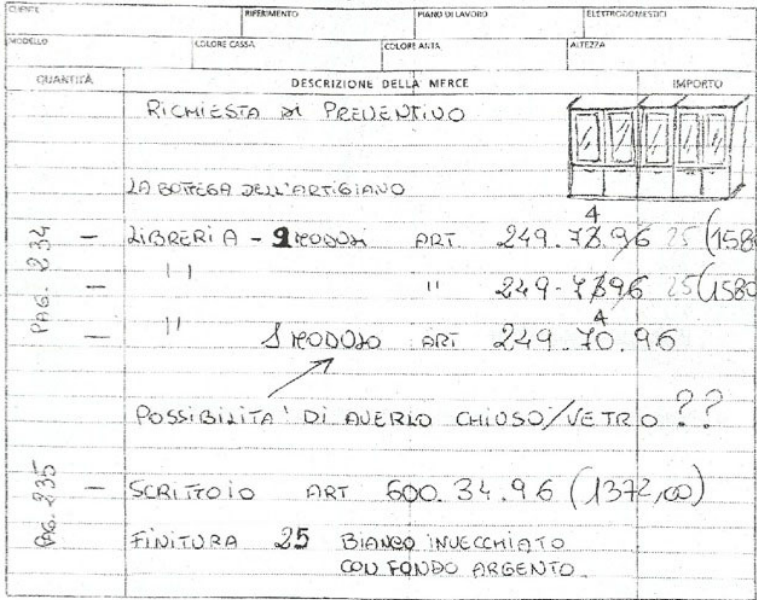 CLIENTE RIFERIMENTO PIANO DI LAVORO ELETTRODOMESTICI
MODELLO COLORE CASSA COLORE ANTA ALTEZZA
QUANTITÀ DESCRIZIONE DELLA MERCE IMPORTO
RICHIESTA DI PREVENTIVO
LA BOTTEGA DELL'ARTIGIANO
PAG. 234
4
- LIBRERIA - 2 MODULI ART. 249.78.96 25 (1580
- " " 249-7896 25 (1580
4
- " 1 MODULO ART 249.70.96
POSSIBILITA' DI AVERLO CHIUSO/VETRO ??
PAG. 235
- SCRITTOIO ART 600.34.96 (1372,00)
FINITURA 25 BIANCO INVECCHIATO
CON FONDO ARGENTO.